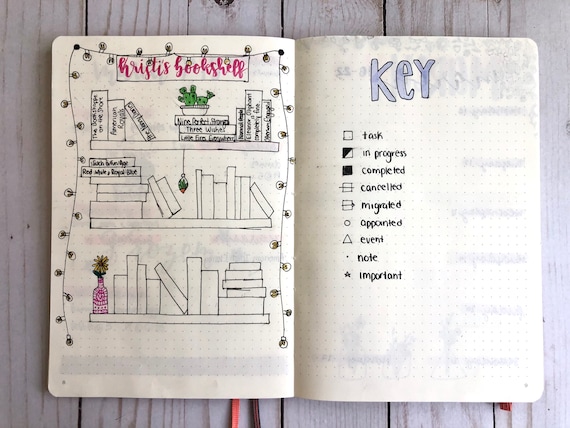 Kristi's bookshelf
The Bookshop on the Shore
American Royals
Nine Perfect Strangers
Three Wishes
Little Fires Everywhere
Normal People
Eleanor Oliphant is Completely Fine
Such a Fun Age
Red, White & Royal Blue
KEY
task
in progress
completed
cancelled
migrated
appointed
event
note
important